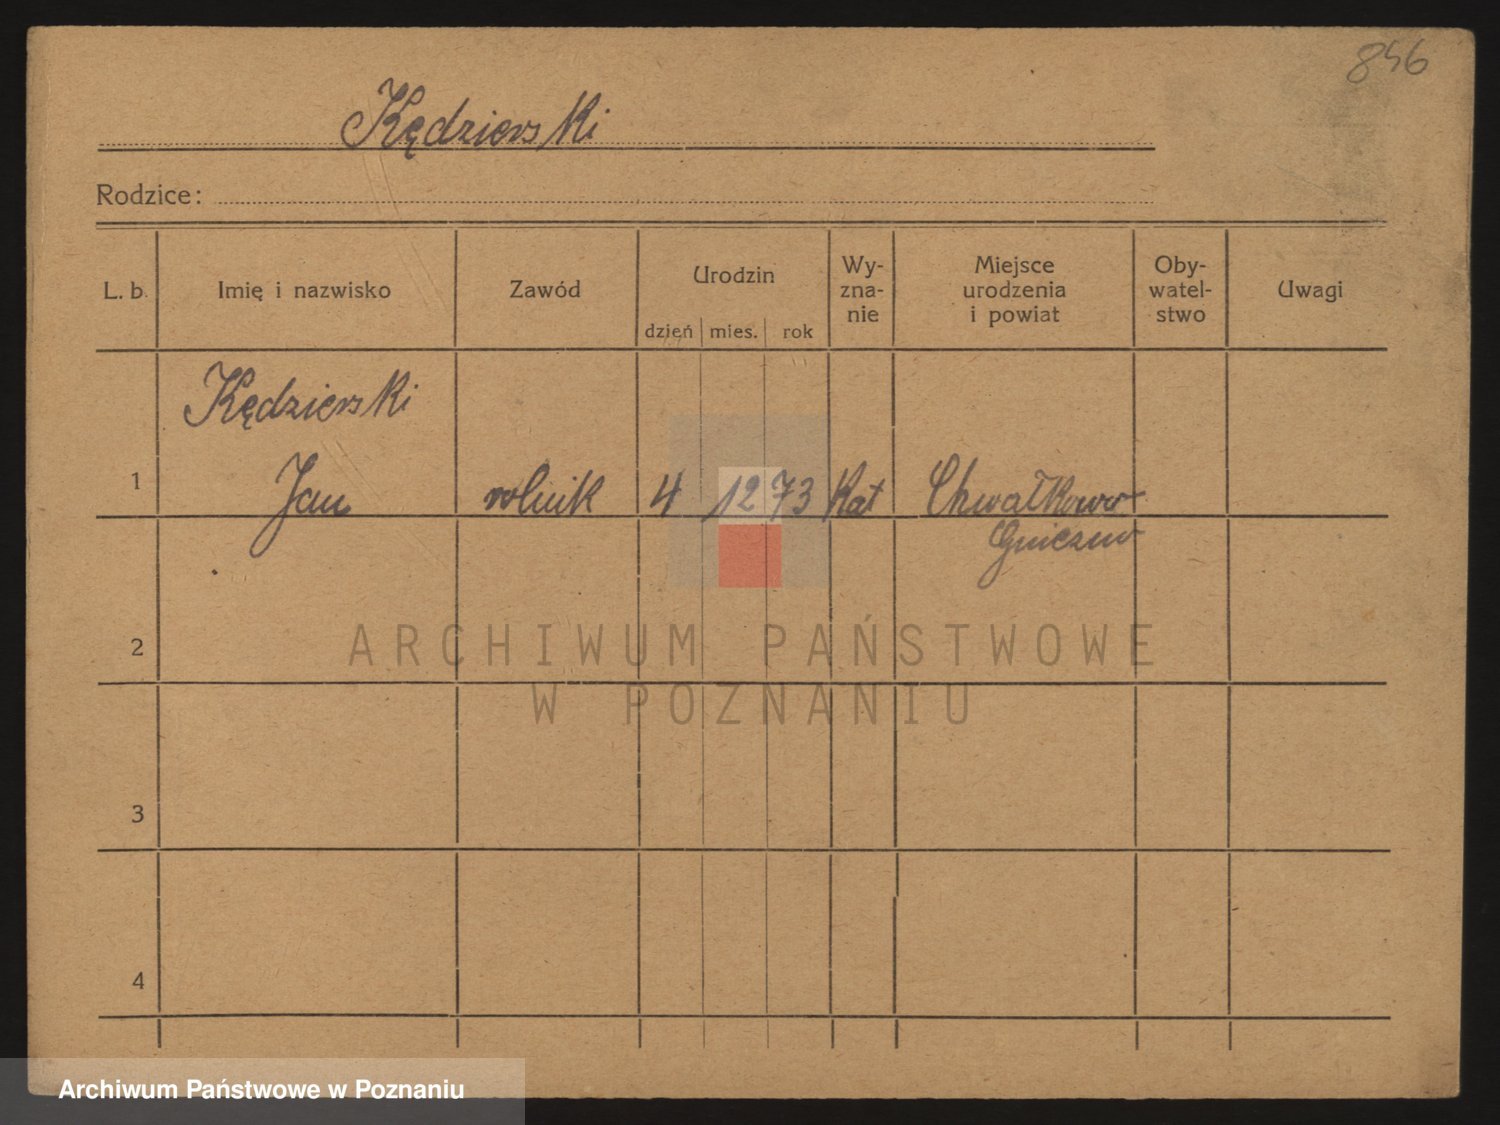 846
Kędzierski
Rodzice:
L. b. Imię i nazwisko Zawód Urodzin dzień mies. rok Wy-zna-nie Miejsce urodzenia i powiat Oby-watel-stwo Uwagi
Kędzierski
1 Jan rolnik 4 12 73 Kat Chwałkowo
Gniezno
2
3
4
ARCHIWUM PAŃSTWOWE
W POZNANIU
Archiwum Państwowe w Poznaniu